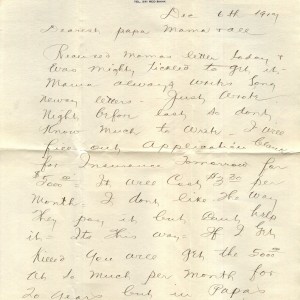 Dec 6th 1917
Dearest papa Mama & all
Received Mamas letter today &
Was mighty tickled to get it.
Mama always writes long
newsy letters. Just Wrote
Night before last so dont
Know Much to Write. I will
fill out Application
for Insurance Tomorrow for
$5000.00 It will Cost $3.20 per
Month. I dont like the way
They pay it but Cant help
it. Its This way. If I get
killed You will get the 5000
At so Much per Month for
20 Years but in Papas